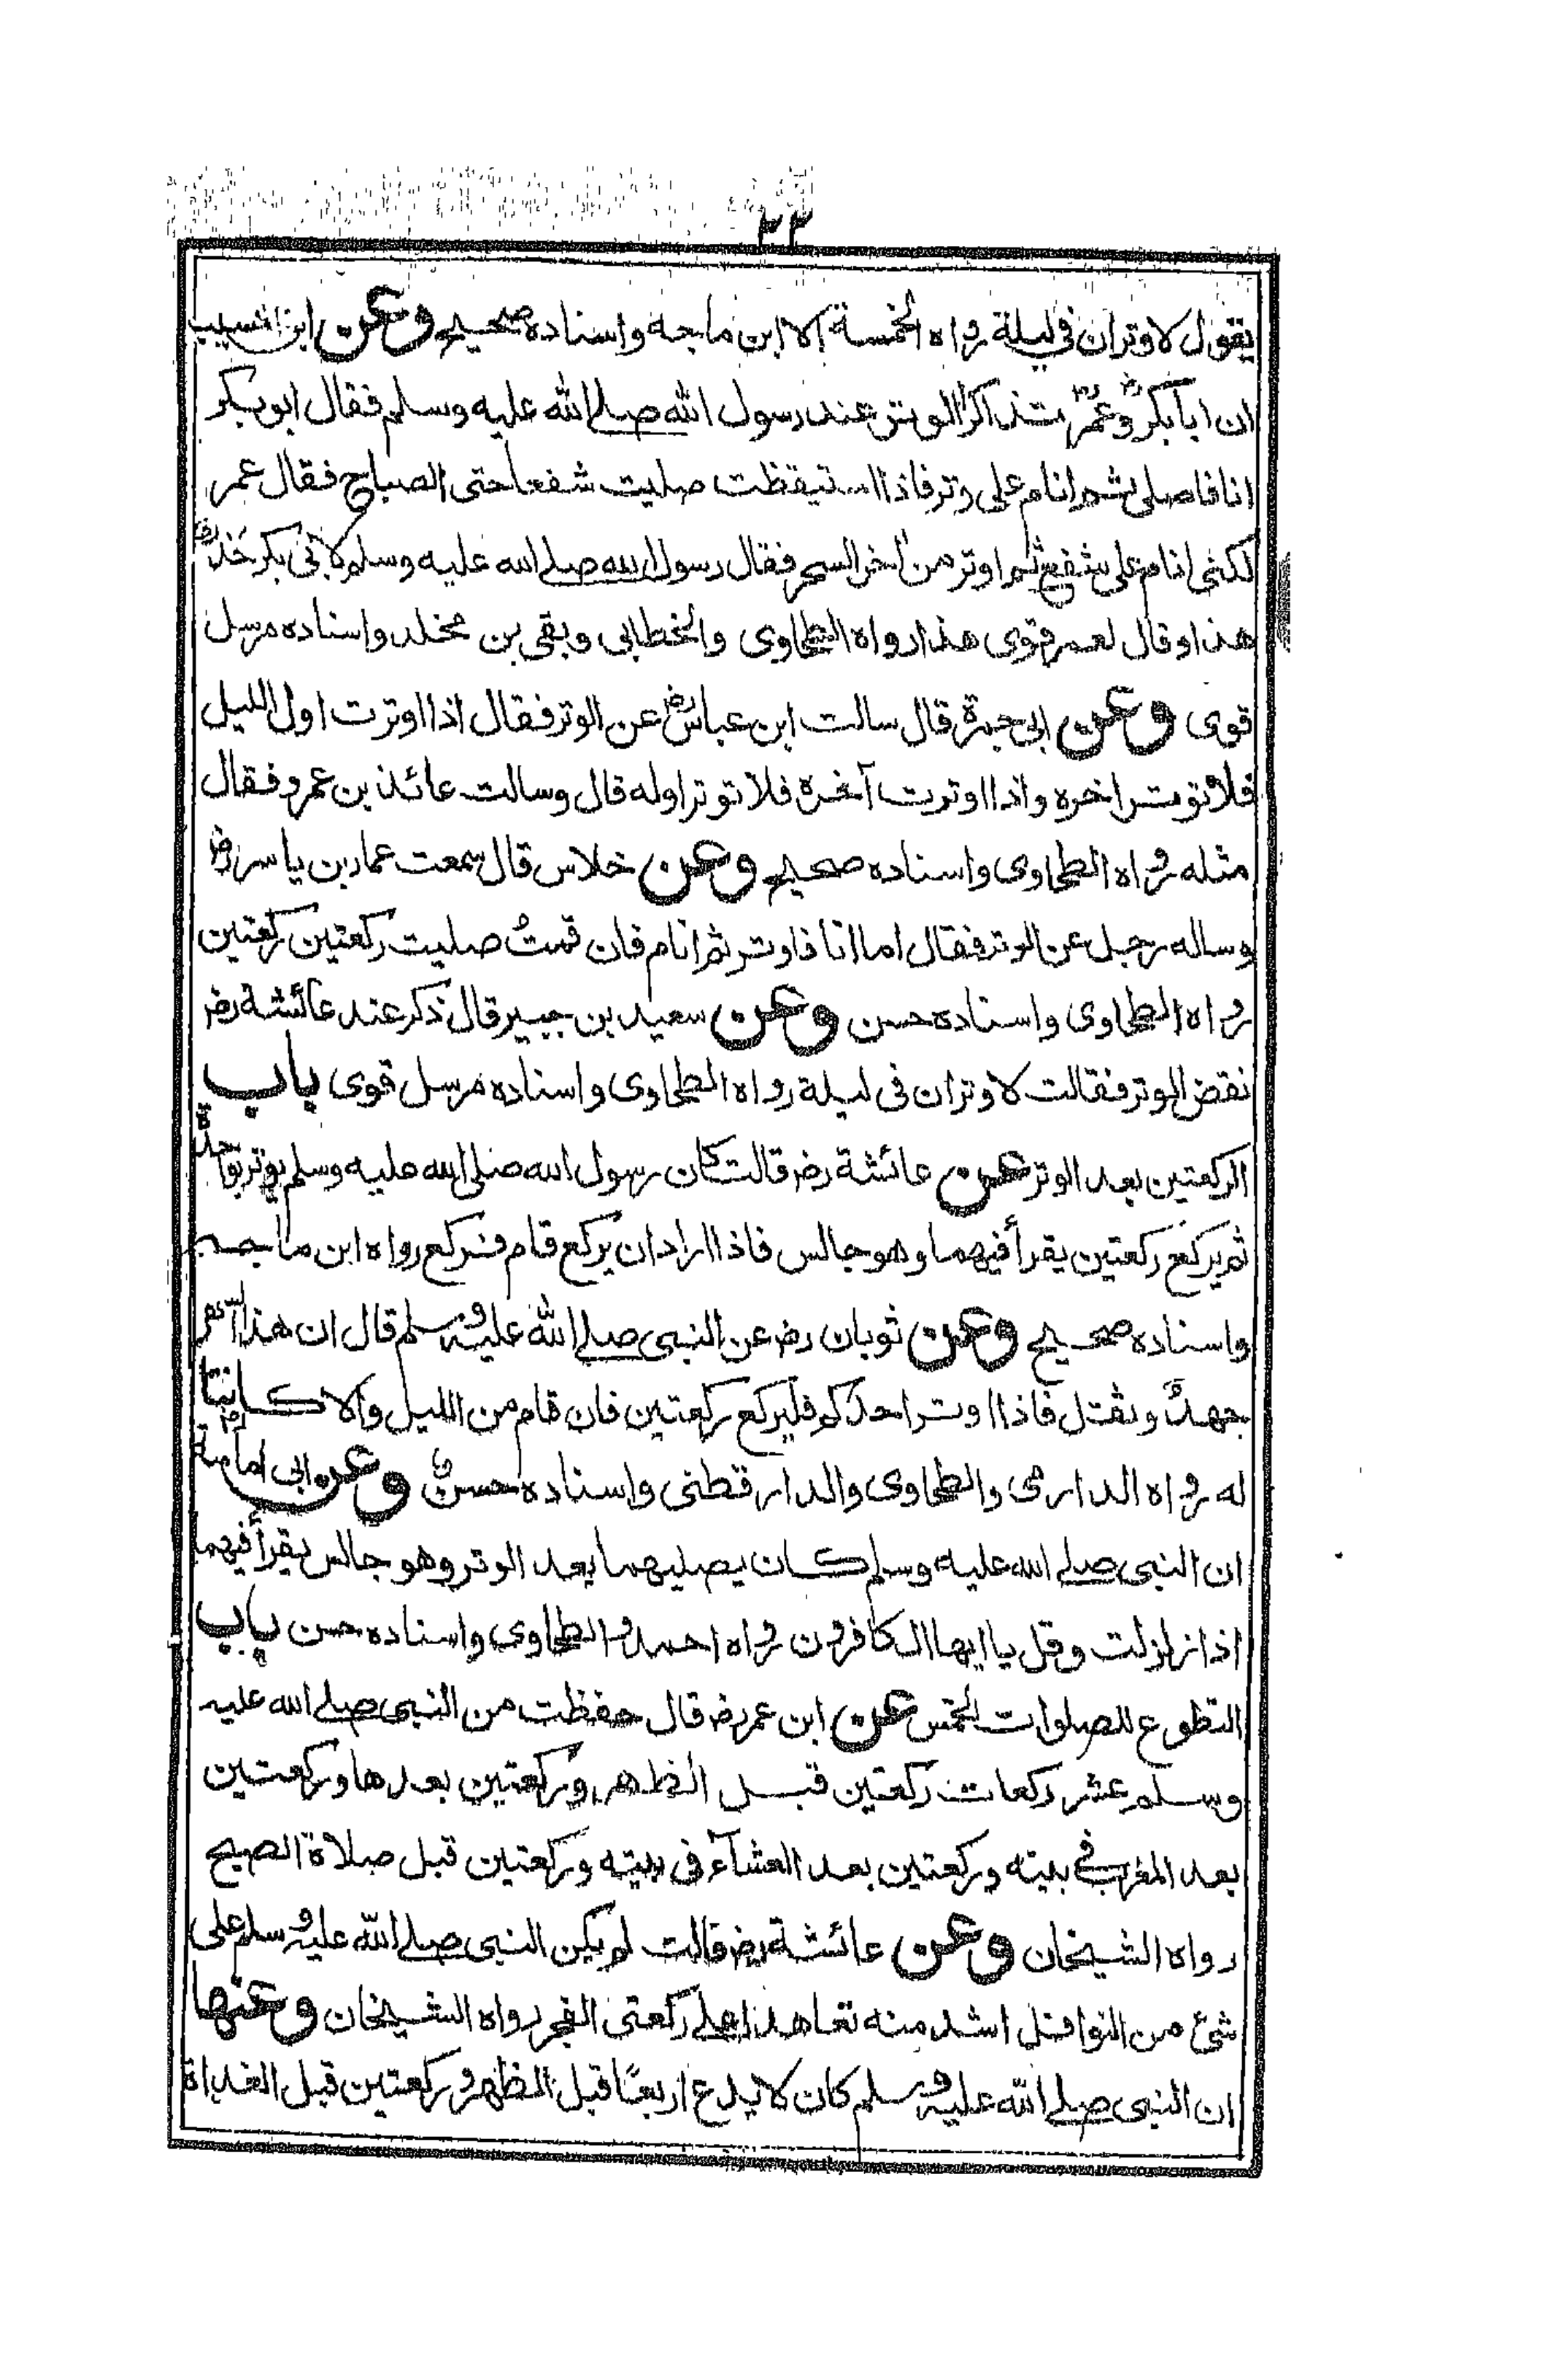 ٣٣
يقول لا وتران في ليلة رواه الخمسة إلا ابن ماجه واسناده صحيح وعن ابن المسيب
ان ابا بكرؓ وعمرؓ تذاكرا الوتر عند رسول الله صلے الله عليه وسلم فقال ابو بكر
انا فاصلى ثم انام على وتر فاذا استيقظت صليت شفعا حتى الصباح فقال عمر
لكنى انام على شفع ثم اوتر من اخر السحر فقال رسول الله صلے الله عليه وسلم لابى بكر حذر
هذا وقال لعمر قوى هذا رواه الطحاوى والخطابى وبقى بن مخلد واسناده مرسل
قوى وعن ابى جمرة قال سالت ابن عباسؓ عن الوتر فقال اذا اوترت اول الليل
فلا توتر اخره واذا اوترت آخره فلا توتر اوله قال وسالت عائذ بن عمرو فقال
مثله رواه الطحاوى واسناده صحيح وعن خلاس قال سمعت عمار بن ياسر رض
وساله رجل عن الوتر فقال اما انا فاوتر ثم انام فان قمتُ صليت ركعتين ركعتين
رواه الطحاوى واسناده حسن وعن سعيد بن جبير قال ذكر عند عائشة رض
نقض الوتر فقالت لا وتران فى ليلة رواه الطحاوى واسناده مرسل قوى باب
الركعتين بعد الوتر عن عائشة رض قالت كان رسول الله صلى الله عليه وسلم يوتر بواحدة
ثم يركع ركعتين يقرأ فيهما وهو جالس فاذا اراد ان يركع قام فركع رواه ابن ماجه
واسناده صحيح وعن ثوبان رض عن النبى صلے الله عليه وسلم قال ان هذا السهر
جهدٌ وثقل فاذا اوتر احدكم فليركع ركعتين فان قام من الليل والا كانتا
له رواه الدارمى والطحاوى والدارقطنى واسناده حسن وعن ابى امامة
ان النبى صلے الله عليه وسلم كان يصليهما بعد الوتر وهو جالس يقرأ فيهما
اذا زلزلت وقل يا ايها الكافرون رواه احمد والطحاوى واسناده حسن باب
التطوع للصلوات الخمس عن ابن عمر رض قال حفظت من النبى صلے الله عليه
وسلم عشر ركعات ركعتين قبل الظهر وركعتين بعدها وركعتين
بعد المغرب في بيته وركعتين بعد العشآء فى بيته وركعتين قبل صلاة الصبح
رواه الشيخان وعن عائشة رض قالت لم يكن النبى صلے الله عليه وسلم على
شئ من النوافل اشد منه تعاهدا على ركعتى الفجر رواه الشيخان وعنها
ان النبى صلے الله عليه وسلم كان لا يدع اربعًا قبل الظهر وركعتين قبل الغداة